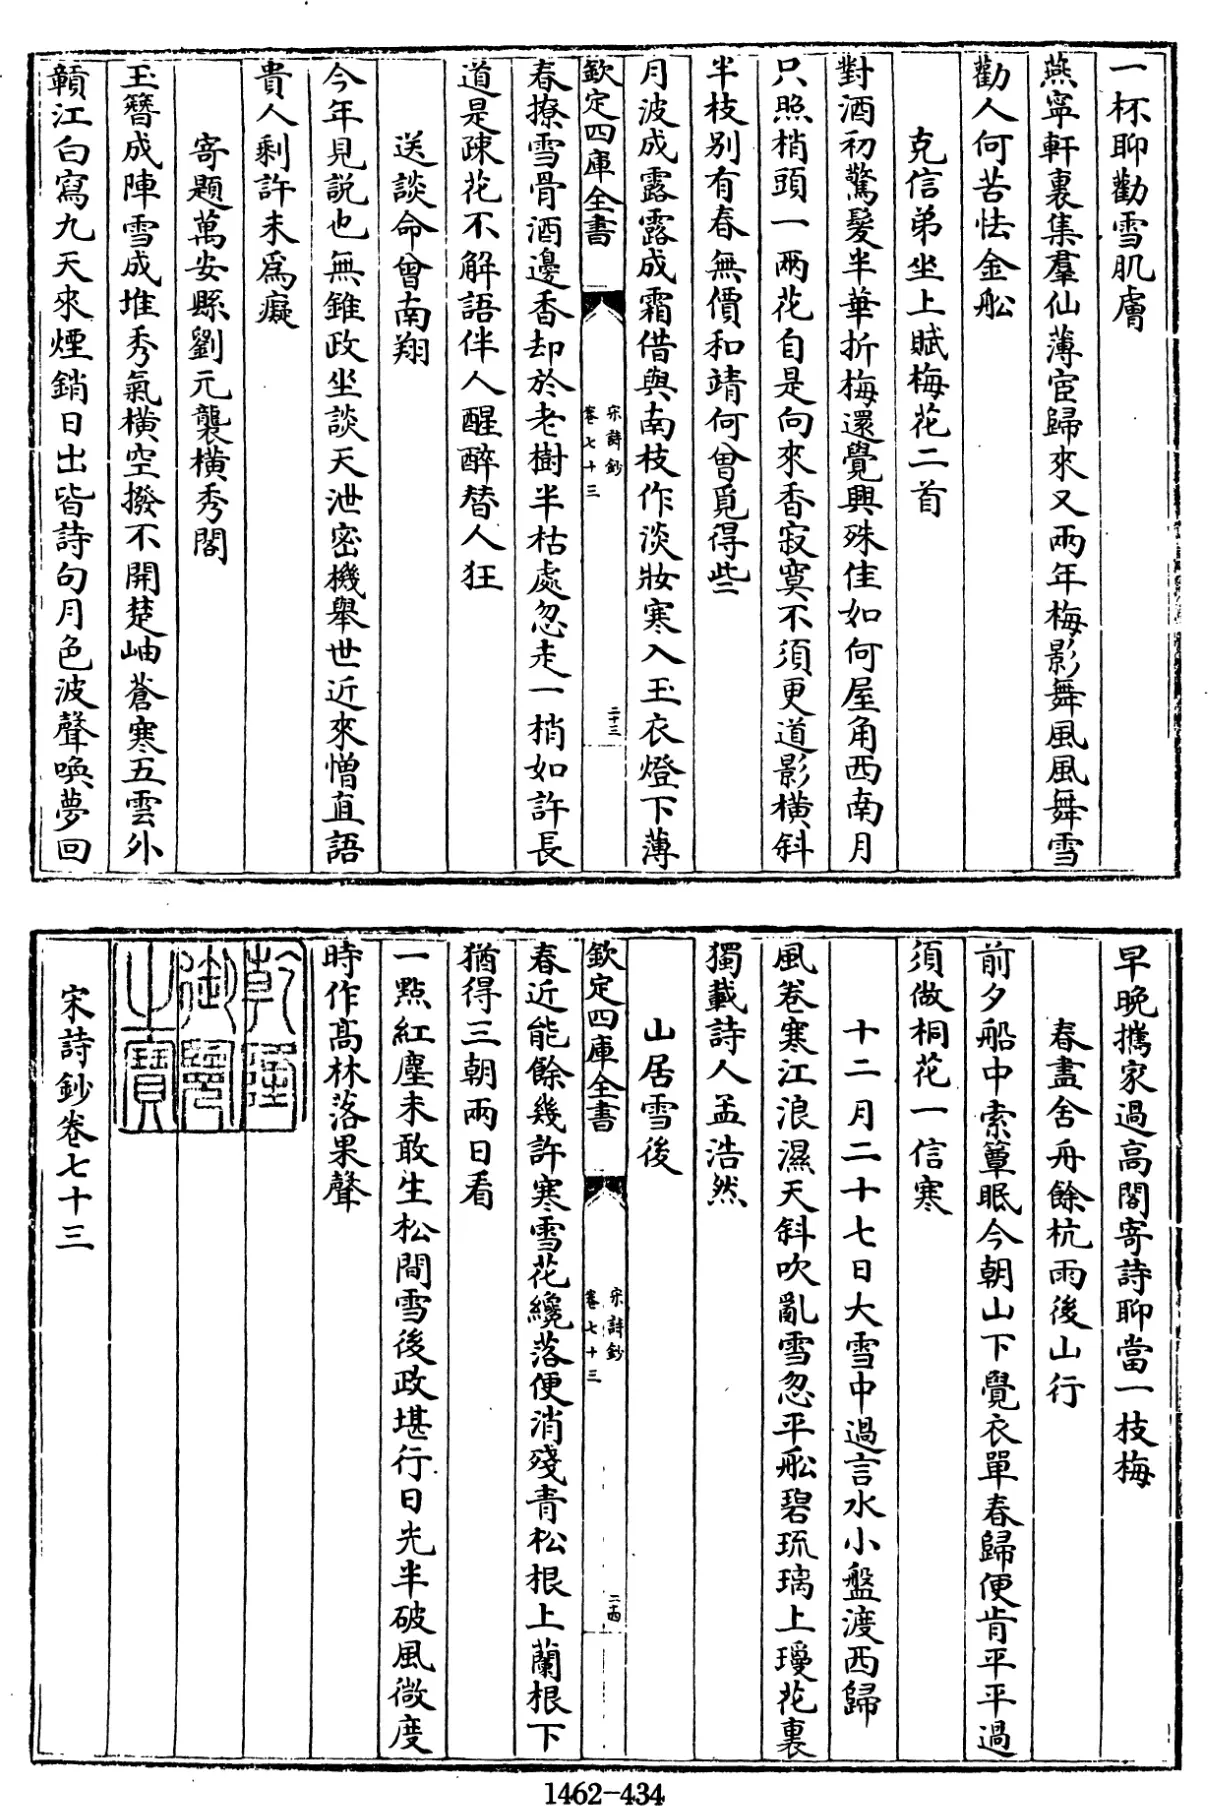 一杯聊勸雪肌膚
燕寧軒裏集羣仙薄宦歸來又兩年梅影舞風風舞雪
勸人何苦怯金船
克信弟坐上賦梅花二首
對酒初驚髮半華折梅還覺興殊佳如何屋角西南月
只照梢頭一兩花自是向來香寂寞不須更道影橫斜
半枝别有春無價和靖何曾覓得些
月波成露露成霜借與南枝作淡妝寒入玉衣燈下薄
欽定四庫全書
宋詩鈔
卷七十三
二十三
春撩雪骨酒邊香却於老樹半枯處忽走一梢如許長
道是疎花不解語伴人醒醉替人狂
送談命曾南翔
今年見說也無錐政坐談天泄密機舉世近來憎直語
貴人剩許未爲癡
寄題萬安縣劉元襲橫秀閣
玉簪成陣雪成堆秀氣橫空撥不開楚岫蒼寒五雲外
贛江白寫九天來煙銷日出皆詩句月色波聲喚夢回
早晚攜家過高閣寄詩聊當一枝梅
春盡舍舟餘杭雨後山行
前夕船中索簟眠今朝山下覺衣單春歸便肯平平過
須做桐花一信寒
十二月二十七日大雪中過言水小盤渡西歸
風卷寒江浪濕天斜吹亂雪忽平船碧琉璃上瓊花裏
獨載詩人孟浩然
山居雪後
欽定四庫全書
宋詩鈔
卷七十三
二十四
春近能餘幾許寒雪花纔落便消殘青松根上蘭根下
猶得三朝兩日看
一點紅塵未敢生松間雪後政堪行日光半破風微度
時作高林落果聲
乾隆
御覽
之寶
宋詩鈔卷七十三
1462-434